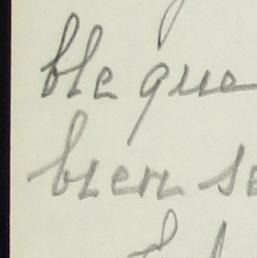 ble que
bien se